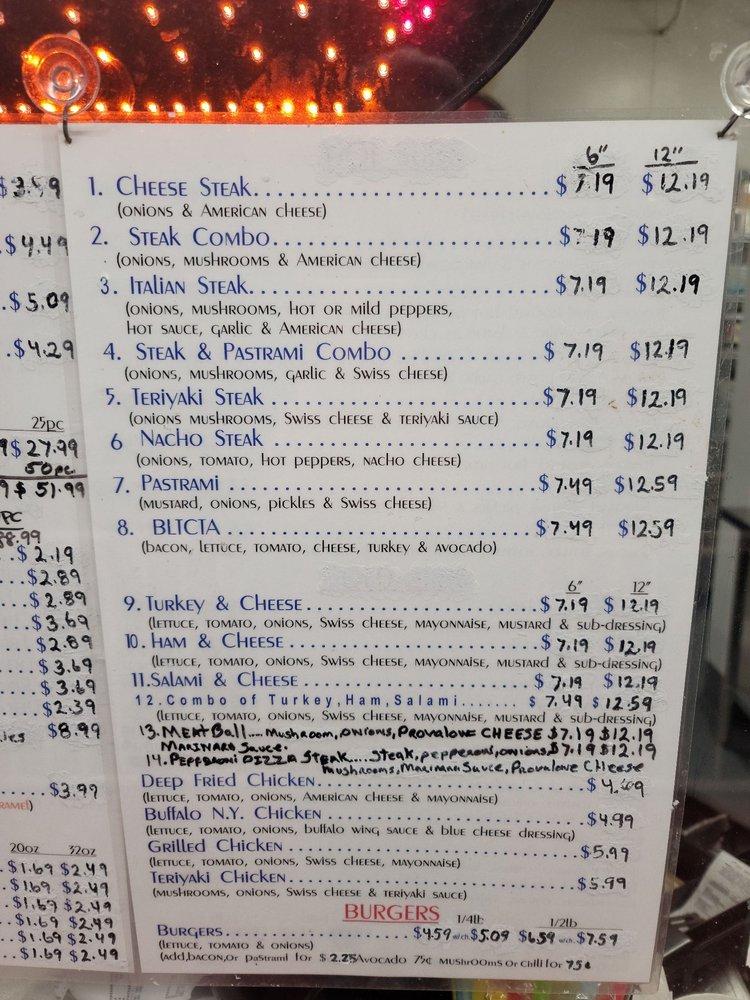 $3.59
$4.49
.$5.09
.$4.29
25pc
$27.99
50pc
$51.99
PC
.$2.19
...$2.89
...$2.89
....$3.69
....$2.89
....$3.69
....$3.69
....$2.39
$8.99
....$3.99
20oz 32oz
.$1.69 $2.49
.$1.69 $2.49
..$1.69 $2.49
..$1.69 $2.49
..$1.69 $2.49
..$1.69 $2.49
6" 12"
1. Cheese Steak....$7.19 $12.19
(onions & American cheese)
2. Steak Combo....$7.19 $12.19
(onions, mushrooms & American cheese)
3. Italian Steak....$7.19 $12.19
(onions, mushrooms, hot or mild peppers,
hot sauce, garlic & American cheese)
4. Steak & Pastrami Combo ....$7.19 $12.19
(onions, mushrooms, garlic & Swiss cheese)
5. Teriyaki Steak ....$7.19 $12.19
(onions mushrooms, Swiss cheese & teriyaki sauce)
6 Nacho Steak ....$7.19 $12.19
(onions, tomato, hot peppers, nacho cheese)
7. Pastrami ....$7.49 $12.59
(mustard, onions, pickles & Swiss cheese)
8. BLTCTA ....$7.49 $12.59
(bacon, lettuce, tomato, cheese, turkey & avocado)
6" 12"
9. Turkey & Cheese....$7.19 $12.19
(lettuce, tomato, onions, Swiss cheese, mayonnaise, mustard & sub-dressing)
10. Ham & Cheese....$7.19 $12.19
(lettuce, tomato, onions, Swiss cheese, mayonnaise, mustard & sub-dressing)
11. Salami & Cheese....$7.19 $12.19
12. Combo of Turkey, Ham, Salami....... $7.49 $12.59
(lettuce, tomato, onions, Swiss cheese, mayonnaise, mustard & sub-dressing)
13. Meat Ball.... Mushroom, onions, Provalone CHEESE $7.19 $12.19
Marinara Sauce.
14. Pepperoni Pizza Steak....Steak, pepperoni, onions $7.19 $12.19
mushrooms, Marinara Sauce, Provalone Cheese
Deep Fried Chicken....$4.
(lettuce, tomato, onions, American cheese & mayonnaise)
Buffalo N.Y. Chicken ....$4.99
(lettuce, tomato, onions, buffalo wing sauce & blue cheese dressing)
Grilled Chicken ....$5.99
(lettuce, tomato, onions, Swiss cheese, mayonnaise)
Teriyaki Chicken....$5.99
(mushrooms, onions, Swiss cheese & teriyaki sauce)
BURGERS 1/4lb 1/2lb
Burgers....$4.59 w/ch. $5.09 $6.59 w/ch. $7.59
(lettuce, tomato & onions)
(add,bacon,or pastrami for $2.25 Avocado 75¢ mushrooms or chili for 75¢